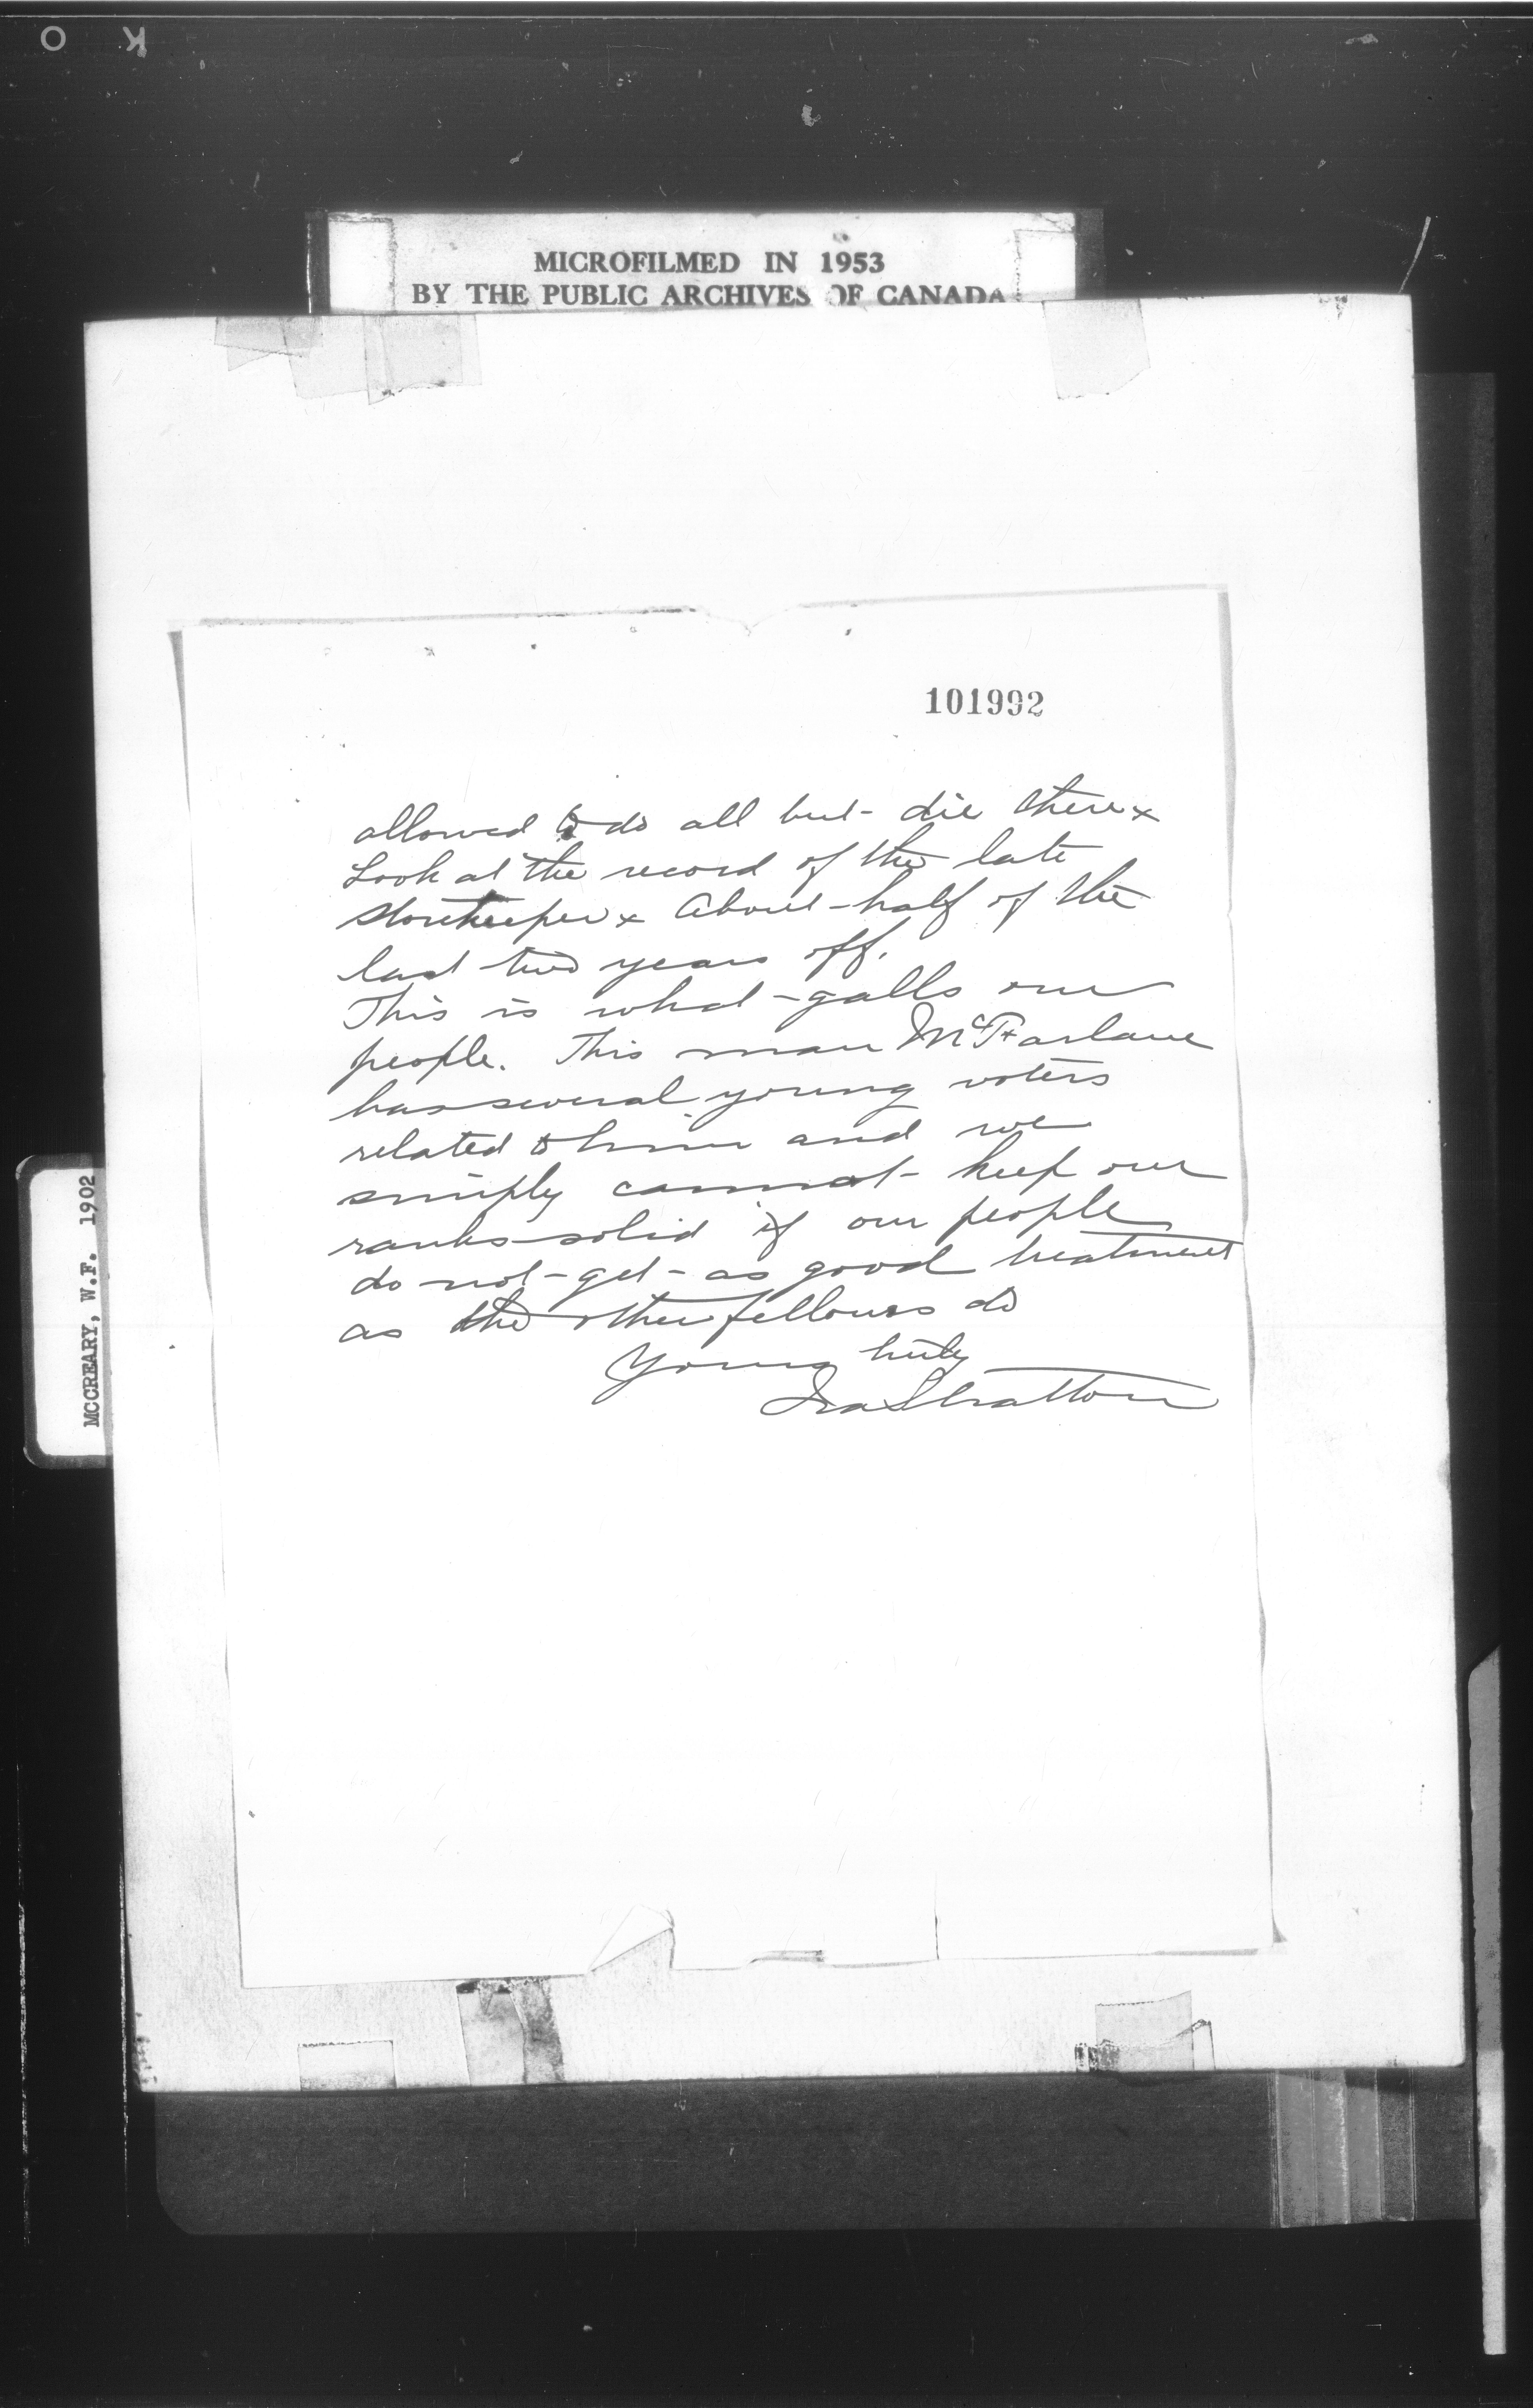 O K
MICROFILMED IN 1953
BY THE PUBLIC ARCHIVES OF CANADA
101992
allowed to do all but die there x
Look at the record of the late
storekeeper x About half of the
last two years off.
This is what galls our
people. This man McFarlane
has several young voters
related to him and we
simply cannot keep our
ranks solid if our people
do not get as good treatment
as the other fellows do
Yours truly
Ira Stratton
MCCREARY, W.F. 1902